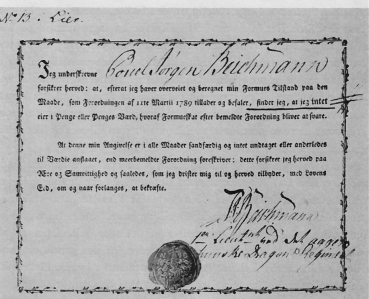 No 13. Lier.
Jeg underskrevne Cornel Jørgen Beichmann
forsikrer herved: at, efterat jeg haver overveiet og beregnet min Formues Tilstand paa den
Maade, som Forordningen af 11te Martii 1789 tillader og befaler, finder jeg, at jeg intet
eier i Penge eller Penges Værd, hvoraf Formueskat efter bemeldte Forordning bliver at svare.
At denne min Angivelse er i alle Maader sandfærdig og intet undtaget eller anderledes
til Værdie ansaaet, end meerbemeldte Forordning foreskriver: dette forsikrer jeg herved paa
Ære og Samvittighed og saaledes, som jeg drister mig til og herved tilbyder, med Lovens
Eed, om og naar forlanges, at bekræfte.
Beichmann
Lieut ved det
Dragon Regiment